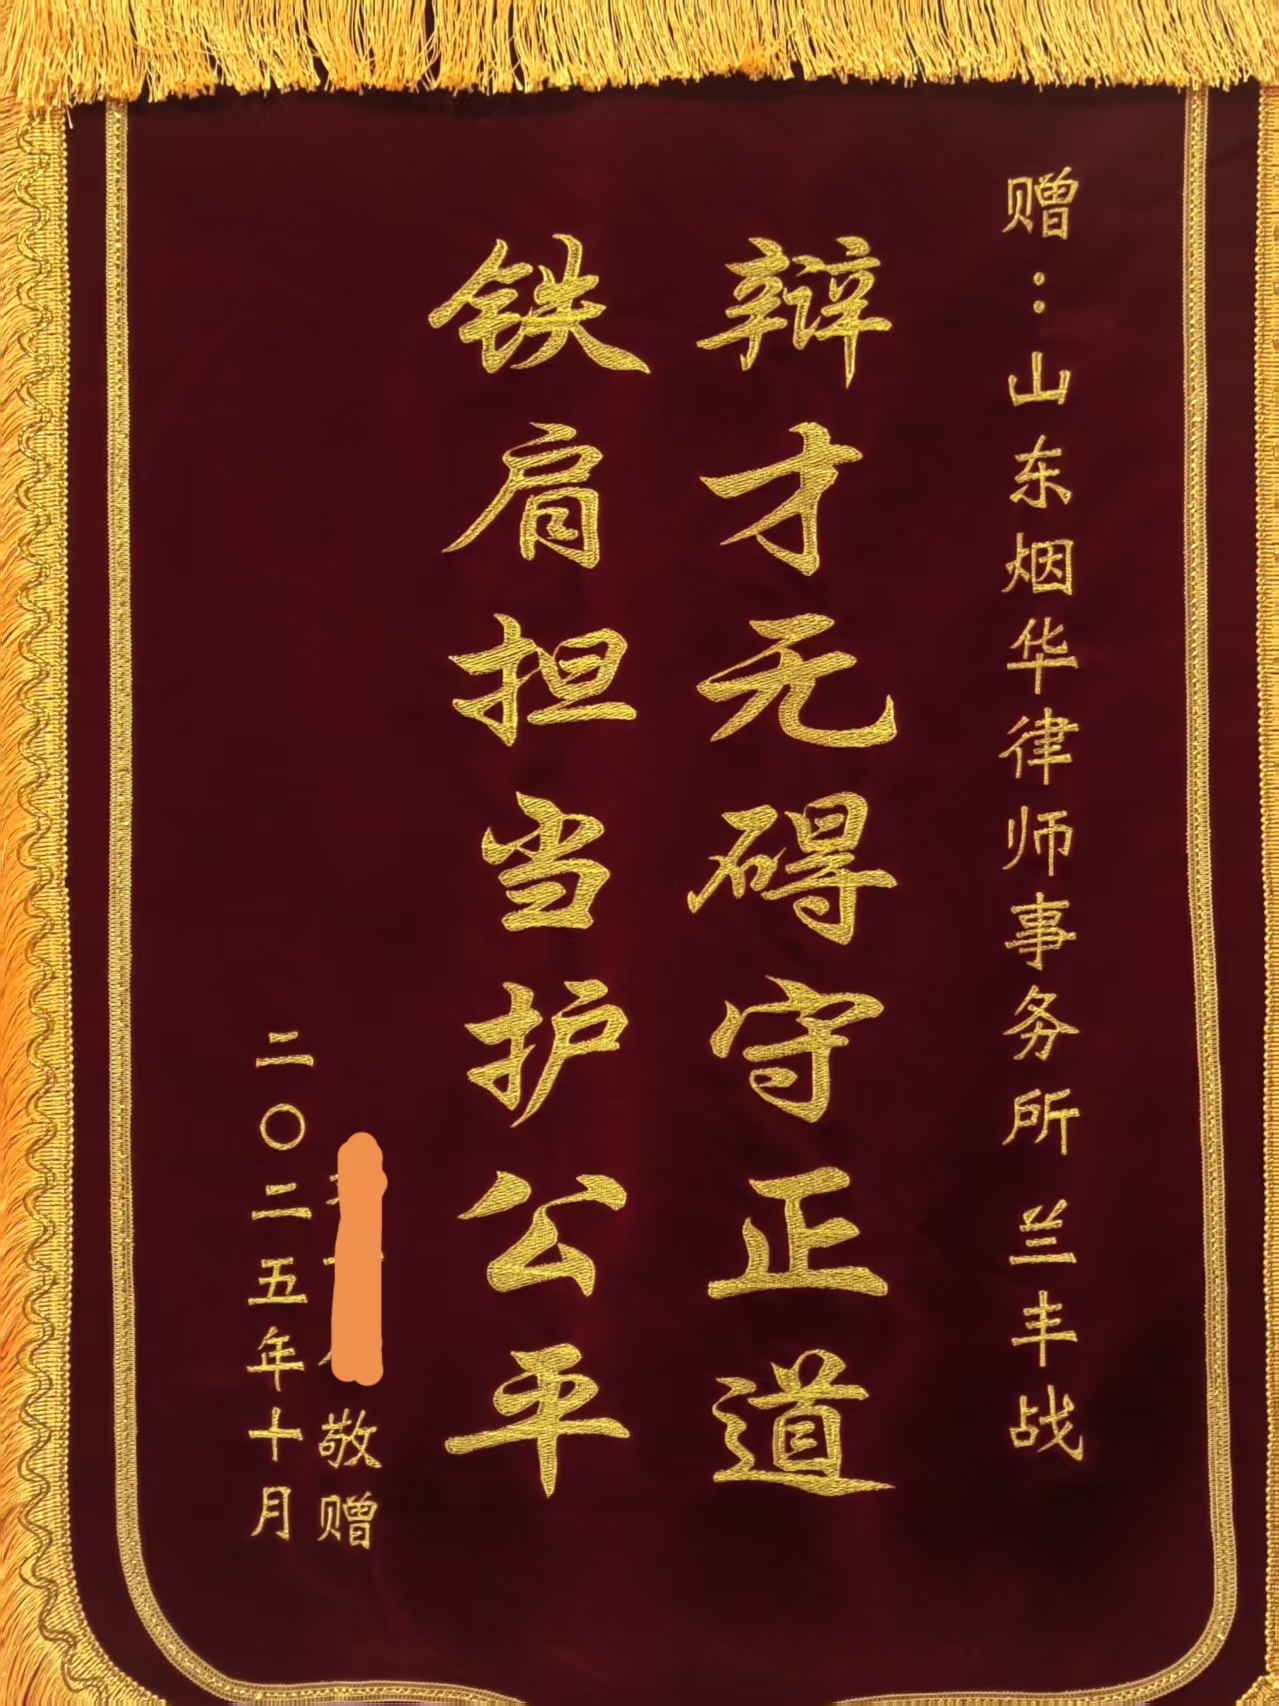 赠：山东烟华律师事务所 兰丰战
辩才无碍守正道
铁肩担当护公平
敬赠
二〇二五年十月